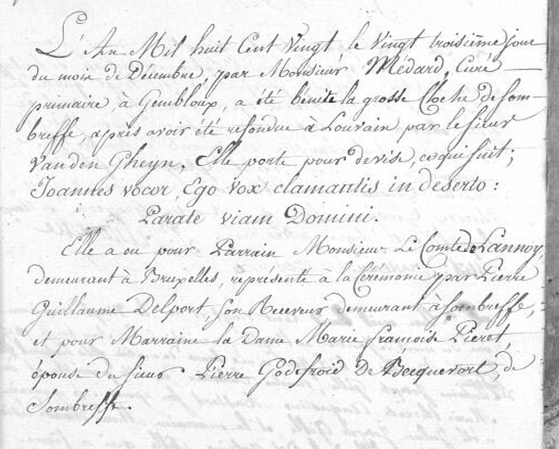 L'An Mil huit Cent vingt le vingt troisième jour
du mois de Décembre, par Monsieur Médard, Curé
primaire, à Gembloux, a été bénite la grosse Cloche de Som-
breffe, après avoir été refondue à Louvain par le sieur
Vanden Gheyn. Elle porte pour devise, ce qui suit;
Joannes vocor, Ego vox clamantis in deserto:
Parate viam Domini.
Elle a eu pour Parrain Monsieur Le Comte de Lannoy,
demeurant à Bruxelles, représenté à la Cérémonie par Pierre
Guillaume Delport, son Receveur demeurant à Sombreffe,
et pour Marraine la Dame Marie françoise Pieret,
épouse du sieur Pierre Godefroid De Becquevort, de
Sombreffe.